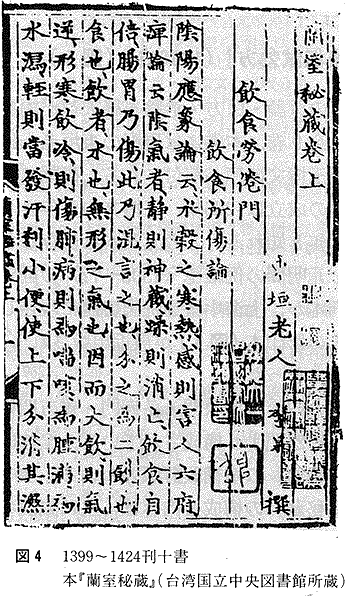 蘭室秘藏卷上
東垣老人 李杲 撰
飲食勞倦門
飲食所傷論
陰陽應象論云水穀之寒熱感則害人六府
痺論云陰氣者靜則神藏躁則消亡飲食自
倍腸胃乃傷此乃混言之也分之為二飲也
食也飲者水也無形之氣也因而大飲則氣
逆形寒飲冷則傷肺病則為喘咳為腫滿為
水瀉輕則當發汗利小便使上下分消其濕
図4 1399～1424刊十書
本『蘭室秘蔵』(台湾国立中央図書館所蔵)